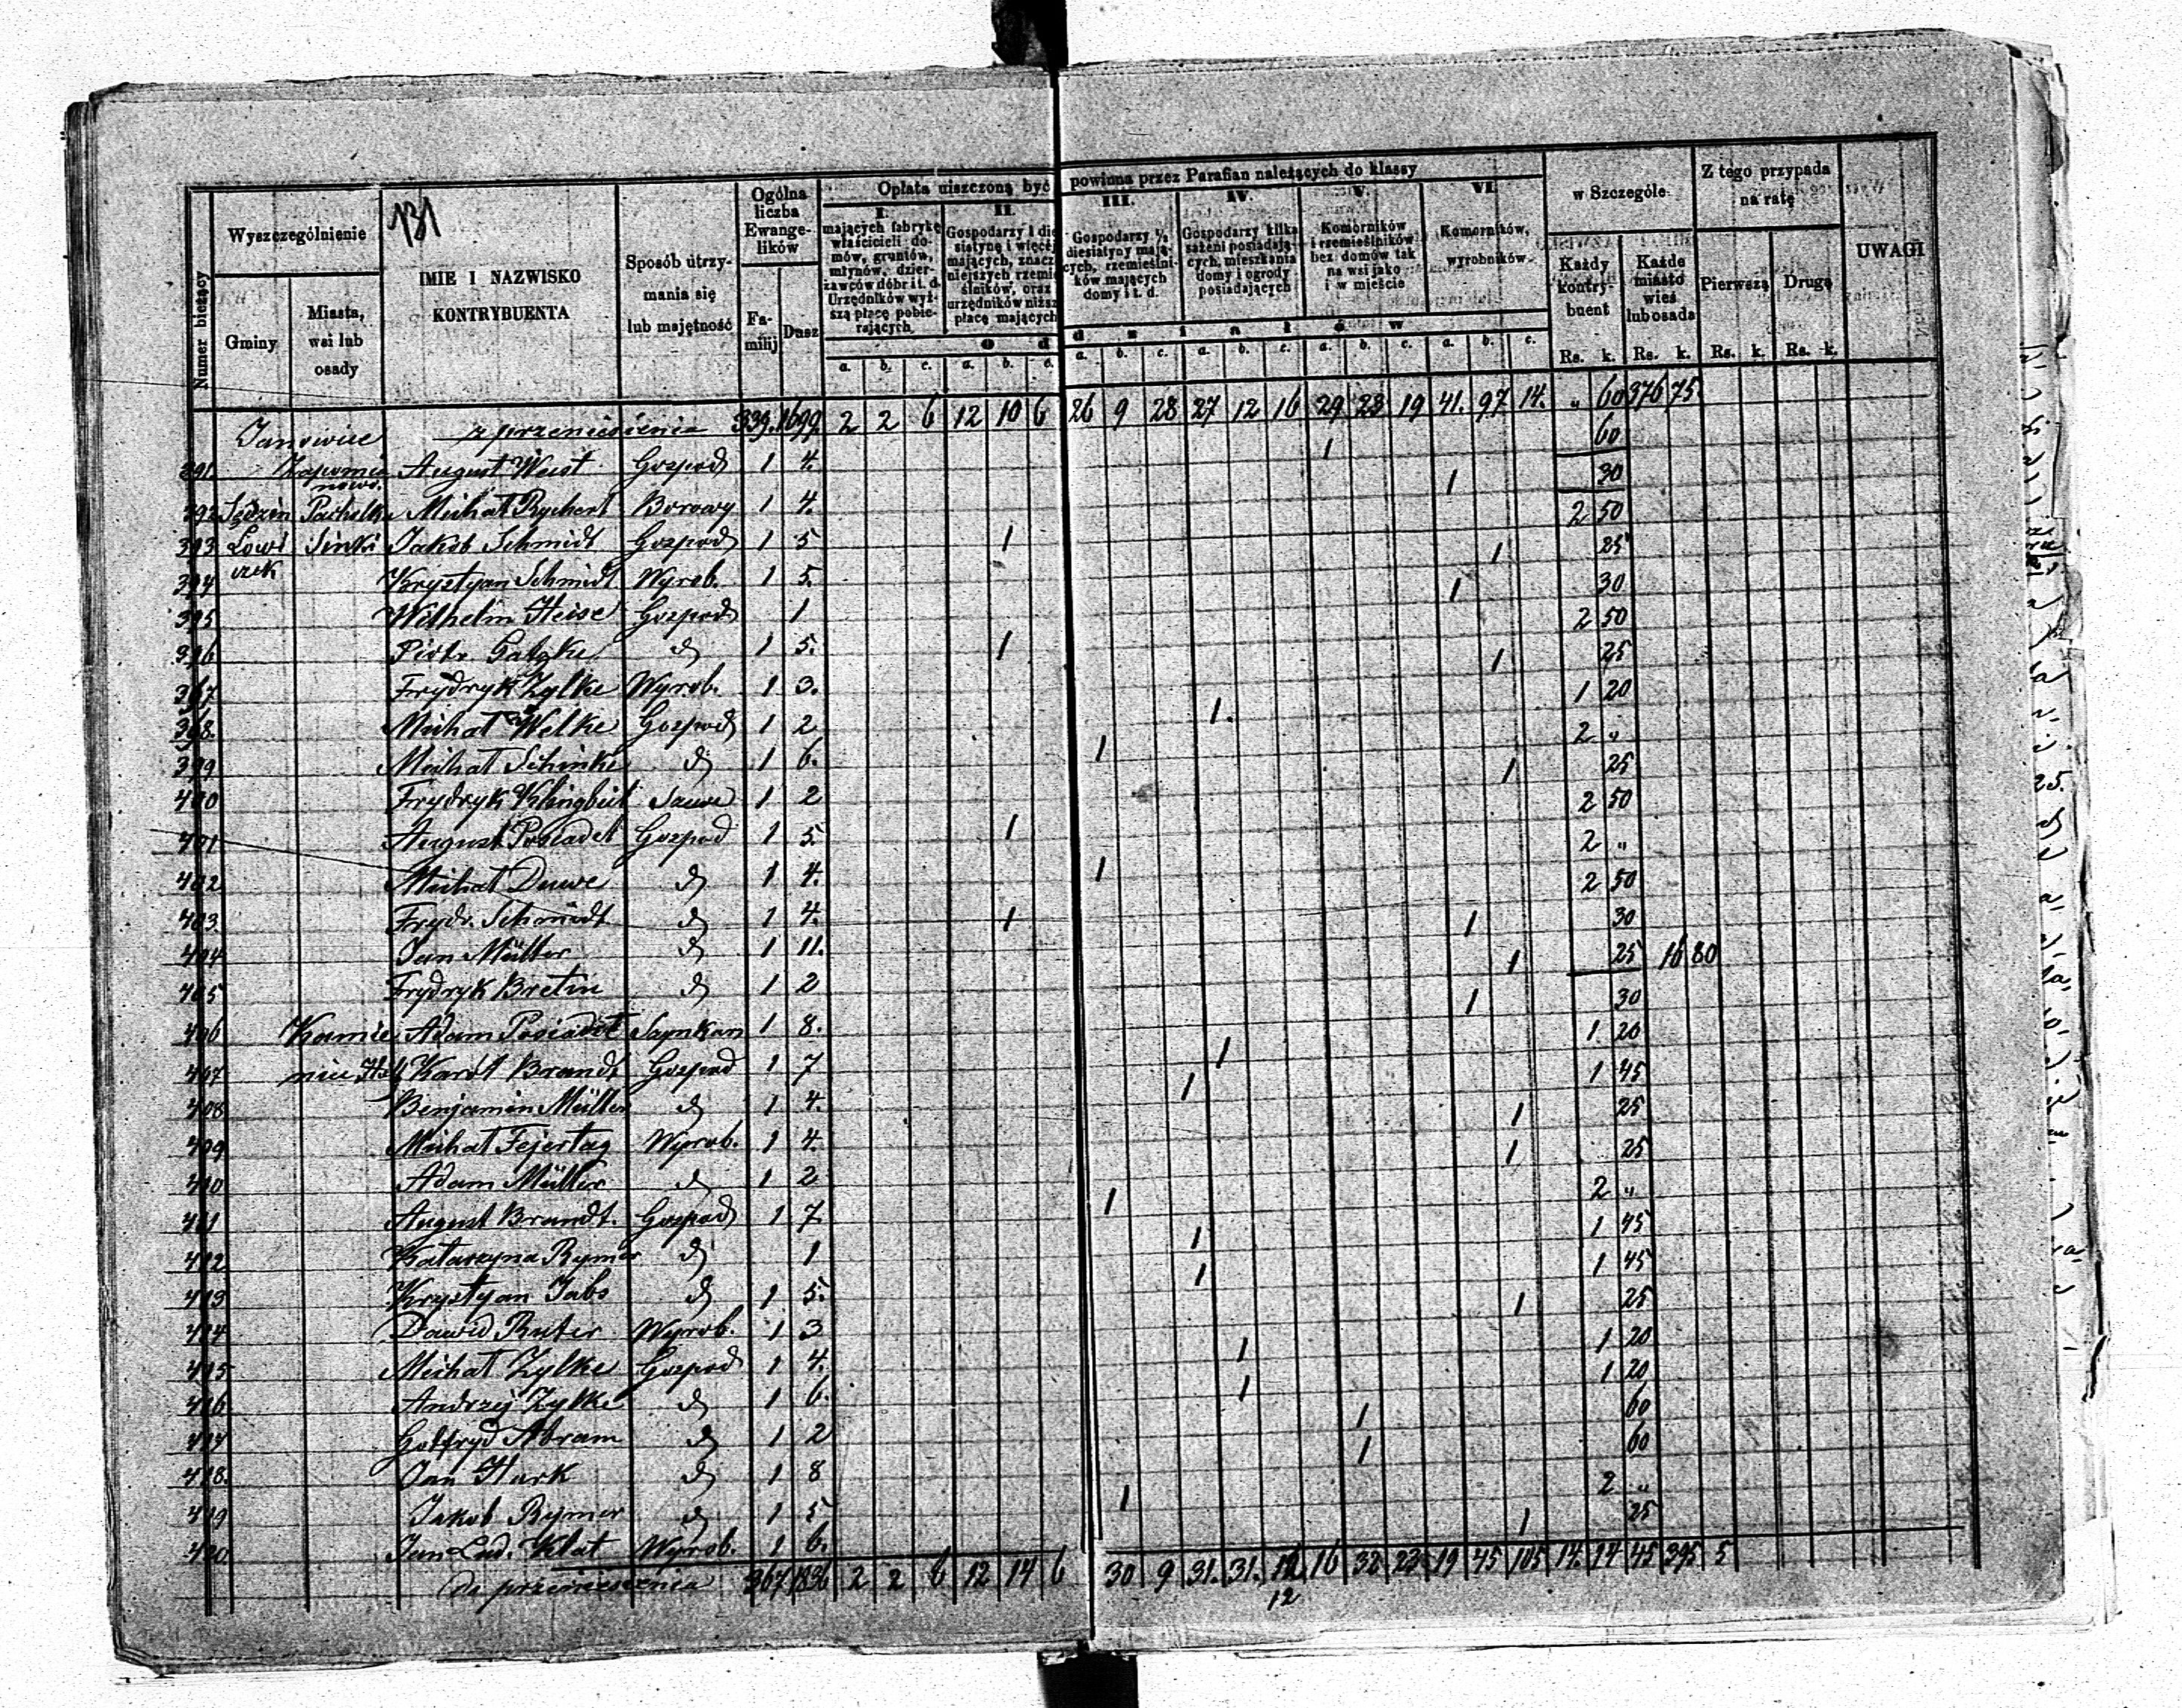 131
Numer bieżący
Wyszczególnienie
Gminy
Miasta, wsi lub osady
IMIE I NAZWISKO KONTRYBUENTA
Sposób utrzymania się lub majętność
Ogólna liczba Ewangelików
Familij
Dusz
Opłata uiszczoną być powinna przez Parafian należących do klassy
I. mających fabrykę właścicieli domów, gruntów, młynów, dzierżawców dóbr i t. d. Urzędników wyższą płacę pobierających
II. Gospodarzy 1 diesiatynę i więcej mających, znaczniejszych rzemieślników, oraz urzędników niższą płacę mających
III. Gospodarzy ½ diesiatyny mających, rzemieślników mających domy i t. d.
IV. Gospodarzy kilka sążeni posiadających, mieszkania domy i ogrody posiadających
V. Komorników i rzemieślników bez domów tak na wsi jako i w mieście
VI. Komorników, wyrobników
O d d z i a ł ó w
a. b. c. a. b. c. a. b. c. a. b. c. a. b. c. a. b. c.
w Szczególe
Każdy kontrybuent
Każde miasto wieś lub osada
Z tego przypada na ratę
Pierwszą
Drugą
UWAGI
Rs. k. Rs. k. Rs. k. Rs. k.
Janowice z przeniesienia 339. 1699. 2 2 6 12 10 6 26 9 28 27 12 16 29 23 19 41. 97 14. " 60 376 75.
391. August Weist Gospod 1 4. 1 60
nowo.
392 Sędzin Pacholka Michał Rychert Borowy 1 4. 1 30
393 Łowi Sinki Jakob Schmidt Gospod 1 5 1 2 50
394 czek Krystyan Schmidt Wyrob. 1 5. 1 25
395 Wilhelm Heise Gospod 1 1 30
396 Piotr Gatzke d 1 5. 1 2 50
397 Frydryk Zylke Wyrob. 1 3. 1 25
398. Michał Welke Gospod 1 2 1. 1 20
399 Michał Schinke d 1 6. 1 2 "
400 Frydryk Klingbeil 1 2 1 25
401 August Posiadel Gospod 1 5. 1 2 50
402 Michał Duwe d 1 4. 1 2 "
403 Frydr. Schmidt d 1 4. 1 2 50
404 Jan Müller d 1 11. 1 30
405 Frydryk Bretin d 1 2 1 25 16 80
406 Kamie Adam Posiadel 1 8. 1 30
407 Karol Brandt Gospod 1 7 1 1 20
408 Benjamin Müller d 1 4. 1 1 45
409 Michał Fejertag Wyrob. 1 4. 1 25
410 Adam Müller d 1 2 1 25
411 August Brandt. Gospod 1 7 1 2 "
412 Katarzyna Rymer d 1 1 1 45
413 Krystyan Jabs d 1 5. 1 1 45
414 Dawid Ruter Wyrob. 1 3 1 25
415 Michał Zylke Gospod 1 4. 1 1 20
416 Andrzej Zylke d 1 6. 1 1 20
417 Gotfryd Abram d 1 2 1 60
418. Jan Hark d 1 8 1 60
419 Jakob Rymer d 1 5 1 2 "
420 Jan Lud. Klat Wyrob. 1 6. 1 25
do przeniesienia 367 1836 2 2 6 12 14 6 30 9 31. 31. 12 16 32 23 19 45 105 14. 14 45 395 5
12